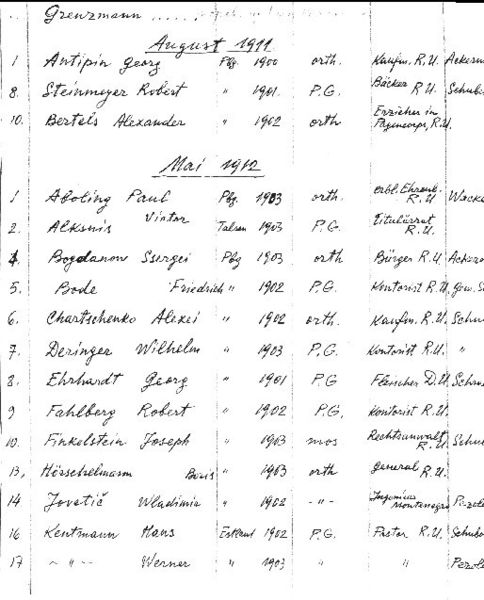 Grenzmann
August 1911
1 Antipin Georg Pbg 1900 orth. Kaufm. R.U. Ackerm
8. Steinmeyer Robert " 1901. P.G. Bäcker R.U. Schub
10. Bertels Alexander " 1902 orth Erzieher im Pagencorps, R.U.
Mai 1912
1 Aboling Paul Pbg. 1903 orth. erbl. Ehrenb. R.U. Wacke
2. Alksnis Viktor Talsen 1903 P.G. Titulärrat R.U.
4. Bogdanow Ssergei Pbg 1903 orth Bürger R.U. Ackerm
5. Bode Friedrich " 1902 P.G. Kontorist R.U.
6. Chartschenko Alexei " 1902 orth. Kaufm. R.U. Schu
7. Deringer Wilhelm " 1903 P.G. Kontorist R.U. "
8. Ehrhardt Georg " 1901 P.G Fleischer D.U. Schu
9 Fahlberg Robert " 1902 P.G. Kontorist R.U.
10. Finkelstein Joseph " 1903 mos Rechtsanwalt R.U. Schu
13, Hörschelmann Boris " 1903 orth General R.U.
14 Jovetič Wladimir " 1902 -"- Ingenieur Montenegro Pezol
16 Kentmann Hans Estland 1902 P.G. Pastor R.U. Schub
17 -"- Werner " 1903 " " Pezol